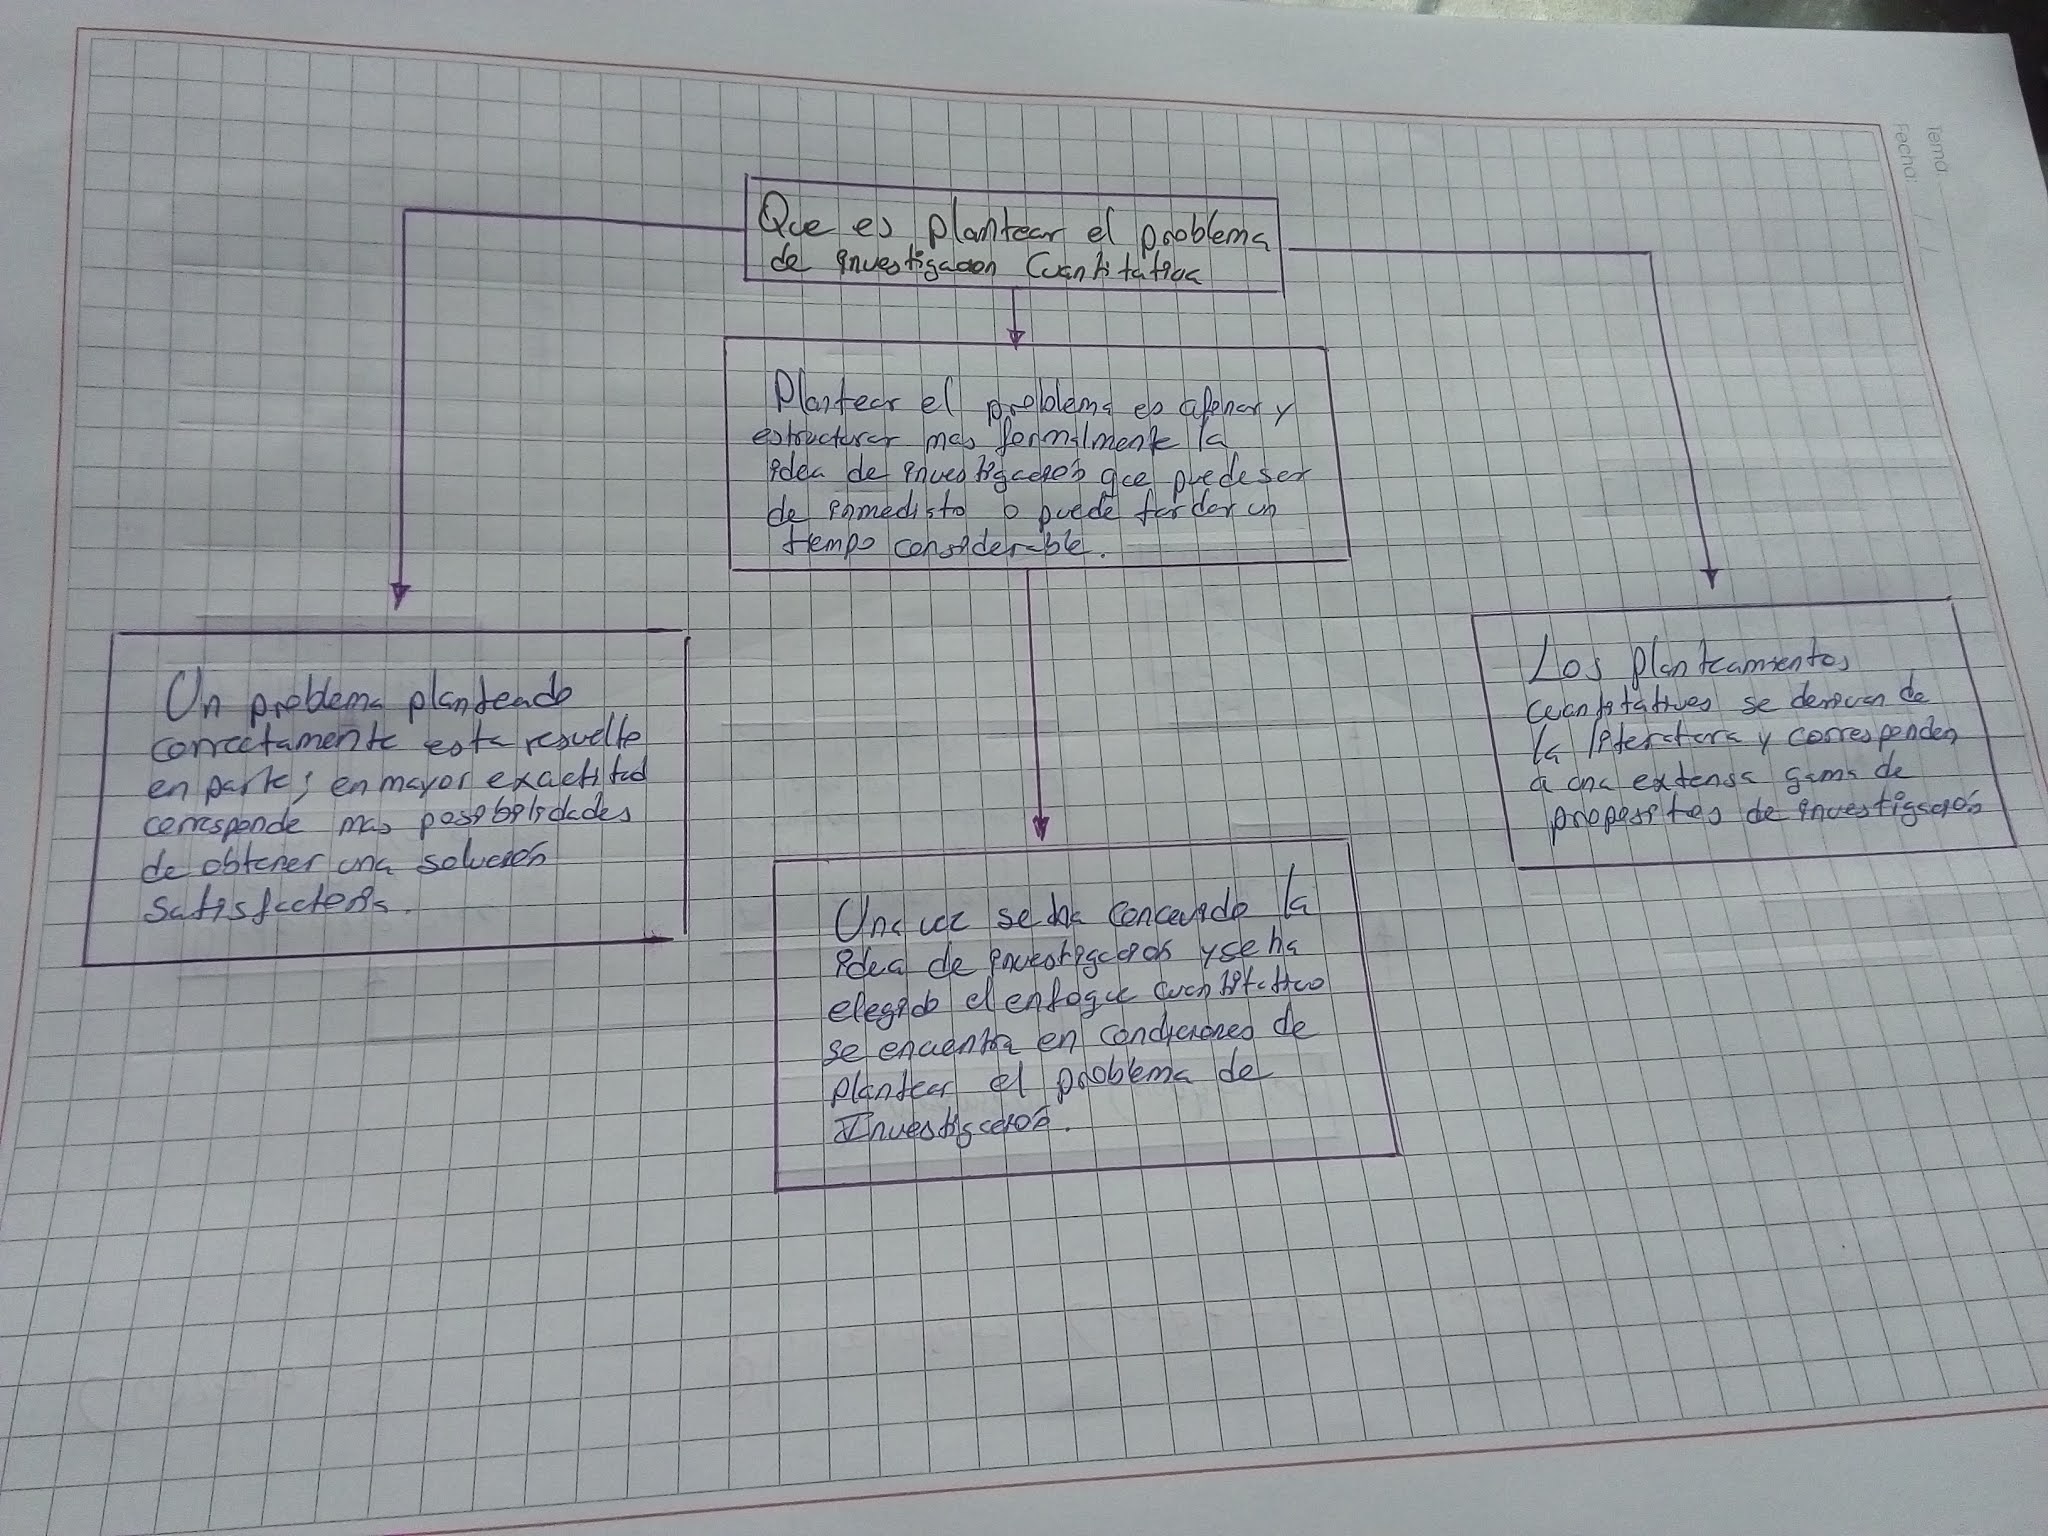 Tema:
Fecha:
Que es plantear el problema
de investigacion Cuantitativa
Plantear el problema es afinar y
estructurar mas formalmente la
idea de investigación que puede ser
de inmediato o puede tardar un
tiempo considerable.
Un problema planteado
correctamente esta resuelto
en parte; en mayor exactitud
corresponde mas posibilidades
de obtener una solución
satisfactoria.
Los planteamientos
cuantitativos se derivan de
la literatura y corresponden
a una extensa gama de
propositos de investigación
Una vez se ha concevido la
idea de investigación y se ha
elegido el enfoque cuantitativo
se encuentra en condiciones de
plantear el problema de
Investigación.